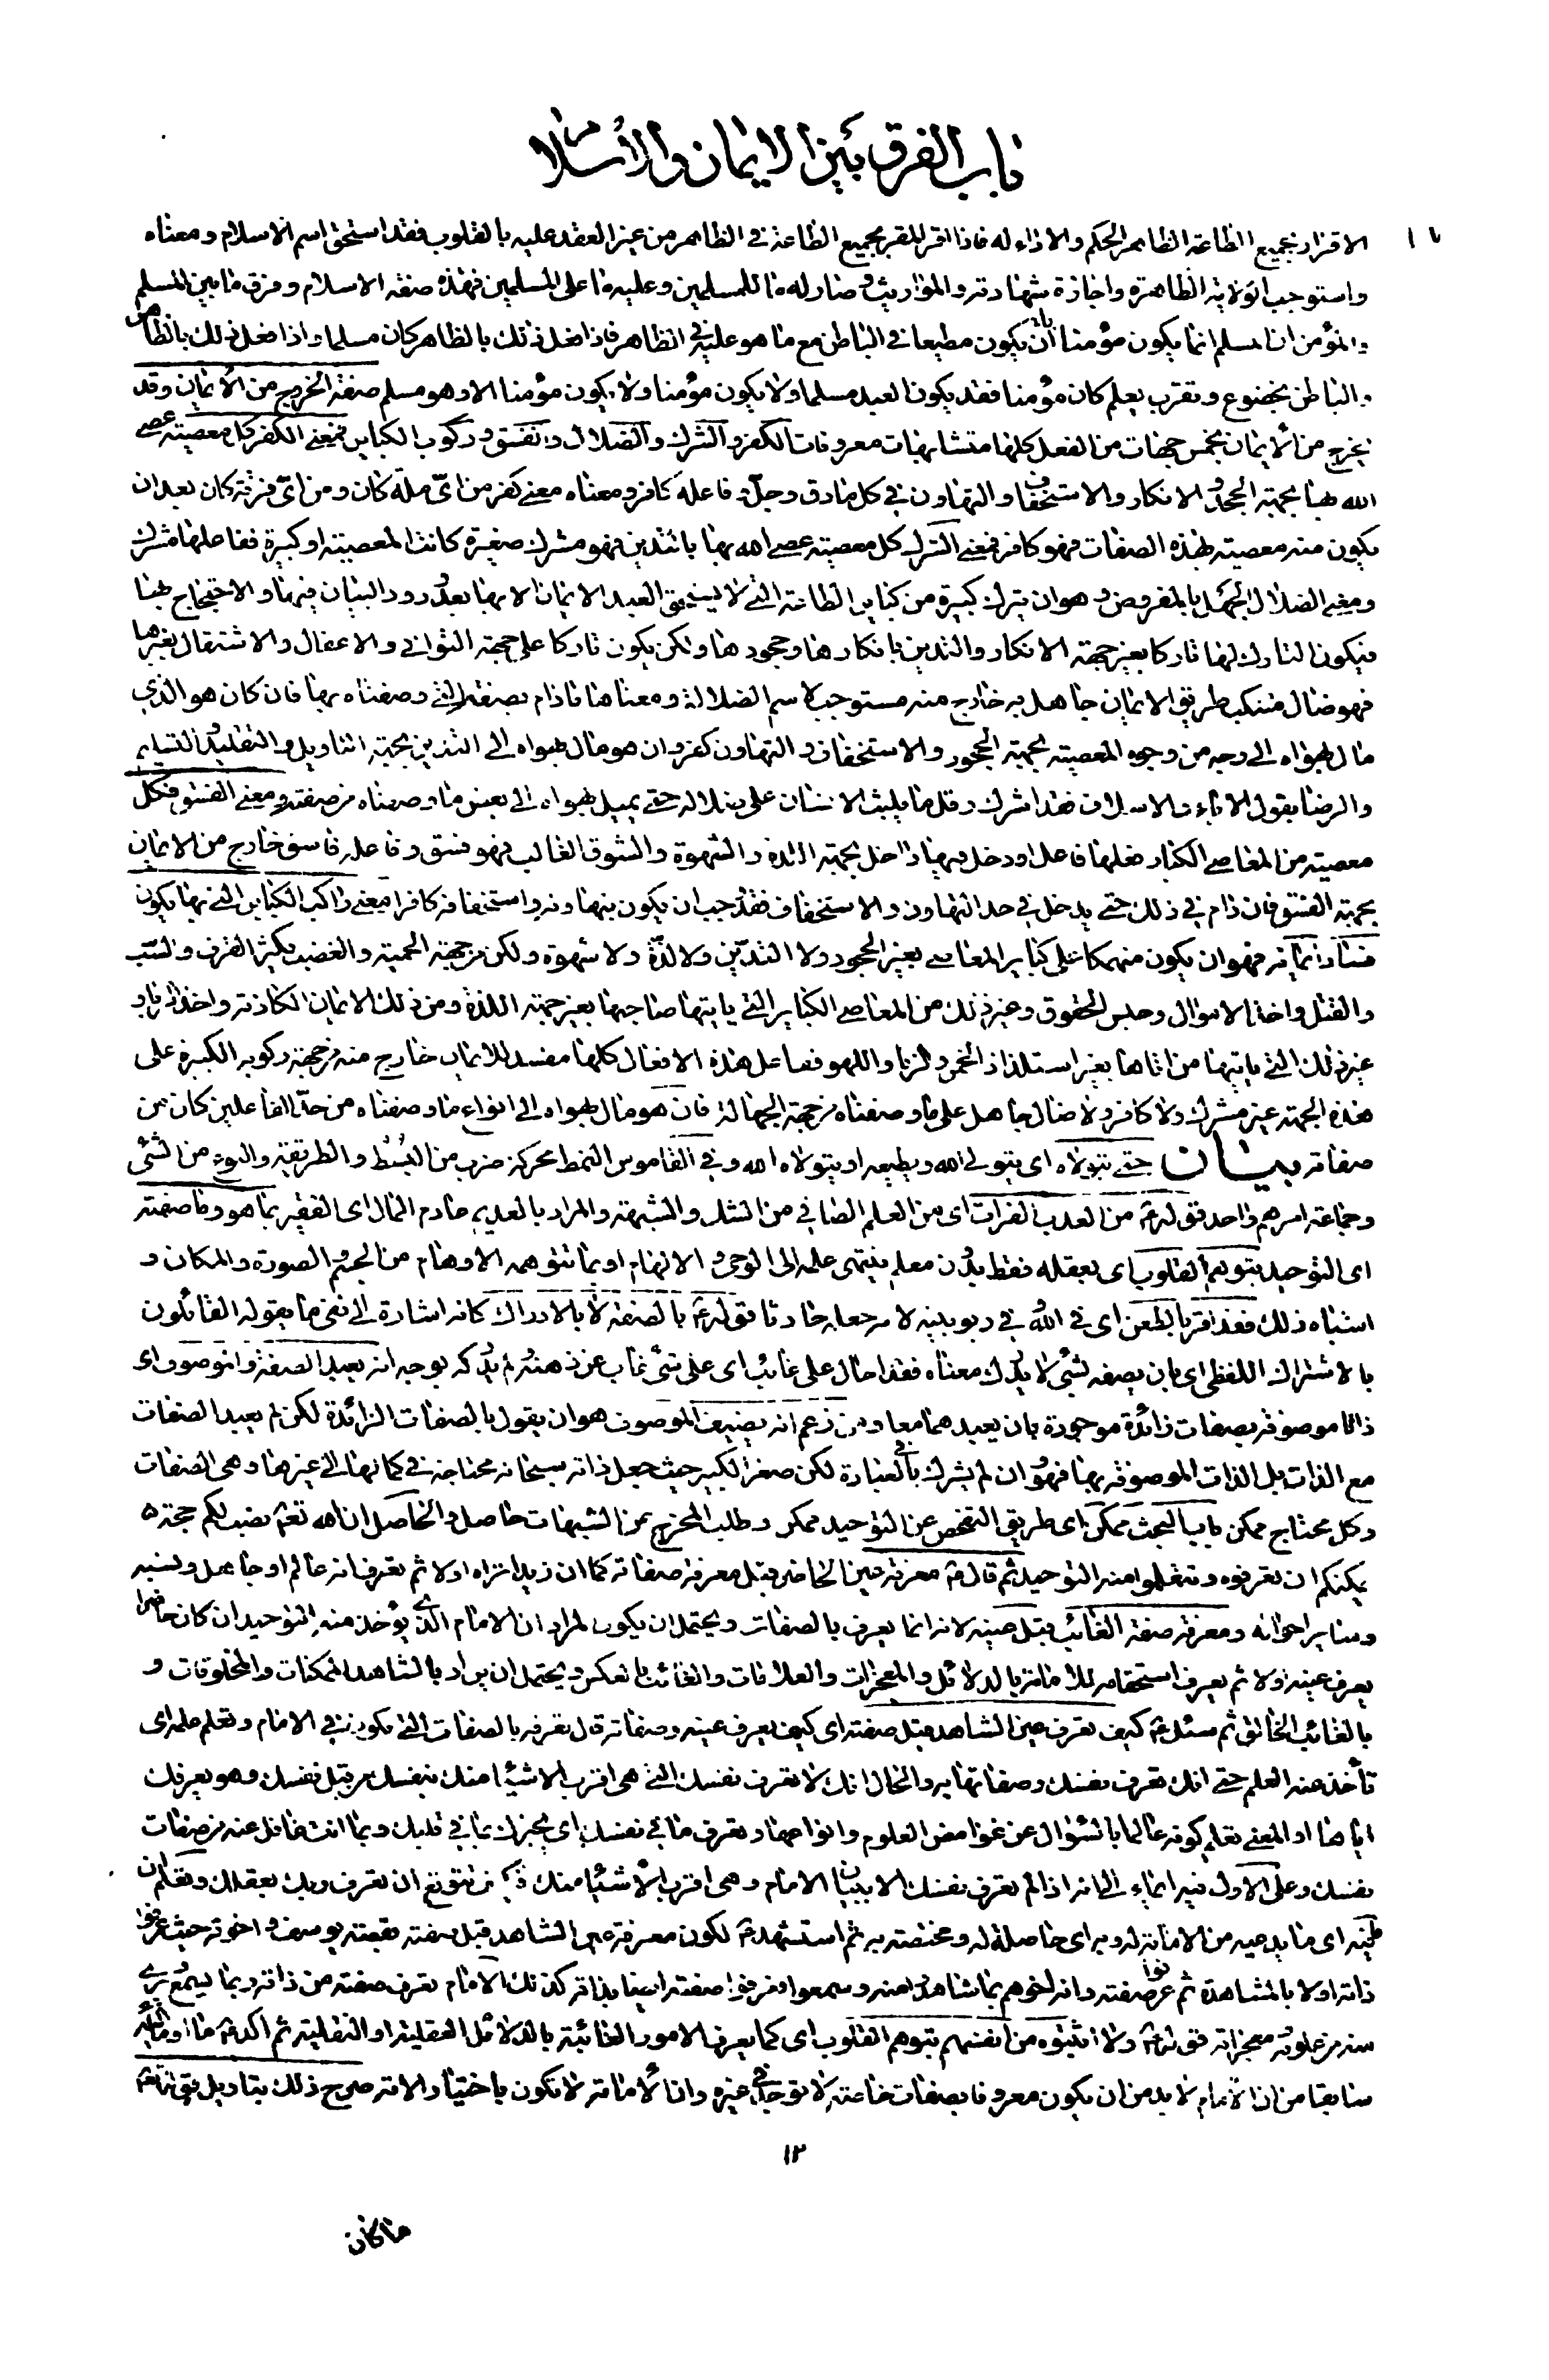 باب الفرق بين الايمان والاسلام
الاقرار بجميع الطاعة الظاهر الحكم والاداء له فاذا اقر المقر بجميع الطاعة في الظاهر من غير العقد عليه بالقلوب فقد استحق اسم الاسلام ومعناه
واستوجب الولاية الظاهرة واجازة شهادته والمواريث وصار له ما للمسلمين وعليه ما على المسلمين فهذه صفة الاسلام وفرق ما بين المسلم
والمؤمن ان المسلم انما يكون مؤمنا ان يكون مطيعا في الباطن مع ما هو عليه في الظاهر فاذا فعل ذلك بالظاهر كان مسلما واذا فعل ذلك بالظاهر
والباطن بخضوع وتقرب بعلم كان مؤمنا فقد يكون العبد مسلما ولا يكون مؤمنا ولا يكون مؤمنا الا وهو مسلم صفة الخروج من الايمان وقد
يخرج من الايمان بخمس جهات من الفعل كلها متشابهات معروفات الكفر والشرك والضلال والفسق وركوب الكباير فمعنى الكفر كل معصية عصى
الله بها بجهة الجحد والانكار والاستخفاف والتهاون في كل ما دق وجل وفاعله كافر ومعناه معنى كفر من اى ملة كان ومن اى فرقة كان بعد ان
يكون منه معصية بهذه الصفات فهو كافر فمعنى الشرك كل معصية عصى الله بها بالتدين فهو مشرك صغيرة كانت المعصية او كبيرة ففاعلها مشرك
ومعنى الضلال الجهل بالمفروض وهو ان يترك كبيرة من كباير الطاعة التى لا يستحق العبد الايمان الا بها بعد ورود البيان فيها والاحتجاج بها
فيكون التارك لها تاركا بغير جهة الانكار والتدين بانكارها وجحودها ولكن يكون تاركا على جهة التوانى والاغفال والاشتغال بغيرها
فهو ضال متنكب طريق الايمان جاهل به خارج منه مستوجب لاسم الضلالة ومعناها ما دام بصفته التى وصفناه بها فان كان هو الذى
مال بهواه الى وجه من وجوه المعصية بجهة الجحود والاستخفاف والتهاون كفر وان هو مال بهواه الى التدين بجهة التاويل والتقليد والتسليم
والرضا بقول الاباء والاسلاف فقد اشرك وقل ما يلبث الانسان على ضلاله حتى يميل بهواه الى بعض ما وصفناه من صفته ومعنى الفسق فكل
معصية من المعاصى الكبار فعلها فاعل او دخل فيها داخل بجهة اللذة والشهوة والشوق الغالب فهو فسق وفاعله فاسق خارج من الايمان
بجهة الفسق فان دام في ذلك حتى يدخل في حد التهاون والاستخفاف فقد وجب ان يكون بتهاونه واستخفافه كافرا فمعنى راكب الكباير التى بها يكون
فساد ايمانه فهو ان يكون منهمكا على كباير المعاصى بغير الجحود ولا التدين ولا لذة ولا شهوة ولكن من جهة الحمية والغضب يكثر القرف والسب
والقتل واخذ الاموال وحبس الحقوق وغير ذلك من المعاصى الكباير التى ياتيها صاحبها بغير جهة اللذة ومن ذلك الايمان الكاذبة واخذ الربا و
غير ذلك التى ياتيها من اتاها بغير استلذاذ الخمر والزنا واللهو ففاعل هذه الافعال كلها مفسد للايمان خارج منه من جهة ركوبه الكبيرة على
هذه الجهة غير مشرك ولا كافر ولا ضال جاهل على ما وصفناه من جهة الجهالة فان هو مال بهواه الى انواع ما وصفناه من حد الفاعلين كان من
صفاته بيان حتى يتولاه اى يتولى الله ويطيعه او يتولاه الله وفي القاموس النمط محركة ضرب من البسط والطريقة والنوع من الشئ
وجماعة امرهم واحد قوله ع من العذب الفرات اى من العلم الصافي من الشك والشبهة والمراد بالعديم خادم المال اى الفقير بما هو وما صفته
اى التوحيد بتوهم القلوب اى بعقله فقط بدون معلم ينتهى علمه الى الوحى والالهام او بما تتوهمه الاوهام من الجسم والصورة والمكان و
اشباه ذلك فقد اقر بالطعن اى في الله في ربوبيته لا مر جعله حادثا قوله ع بالصفة لا بالادراك كانه اشارة الى نفى ما يقوله القائلون
بالاشتراك اللفظى اى بان يصفه لشئ لا يدرك معناه فقد احال على غائب اى على شئ غاب عن ذهنه لم يدركه بوجه انه يعبد الصفة والموصوف اى
ذاتا موصوفة بصفات زائدة موجودة بان يعبدهما معا ومن زعم انه يضيف الموصوف هو ان يقول بالصفات الزائدة لكن لم يعبد الصفات
مع الذات بل الذات الموصوفة بها فهو وان لم يشرك في العبادة لكن صغر الكبير حيث جعل ذاته سبحانه محتاجة في كمالها الى غيرها وهى الصفات
وكل محتاج ممكن باب البحث ممكن اى طريق التفحص عن التوحيد ممكن وطلب المخرج عن الشبهات حاصل والحاصل ان الله تعم نصب لكم حجته
يمكنكم ان تعرفوه وتتعلموا منه التوحيد ثم قال ع معرفة عين الحاضر قبل معرفة صفاته كما ان زيدا تراه اولا ثم تعرف انه عالم او جاهل ونسبه
وساير احواله ومعرفة صفة الغائب قبل عينه لانه انما يعرف بالصفات ويحتمل ان يكون المراد ان الامام الذى يؤخذ منه التوحيد ان كان حاضرا
يعرف عينه اولا ثم يعرف استحقاقه للامامة بالدلائل والمعجزات والعلامات والغائب بالعكس ويحتمل ان يراد بالشاهد الممكنات والمخلوقات و
بالغائب الخالق ثم سئل ع كيف تعرف عين الشاهد قبل صفته اى كيف يعرف عينه وصفاته قال تعرفه بالصفات التى تكون في الامام وتعلم علمه اى
تأخذ عنه العلم حتى انك تعرف نفسك وصفاتها به والحال انك لا تعرف نفسك التى هى اقرب الاشياء منك بنفسك من قبل نفسك وهو يعرفك
اياها او المعنى تعلم كونه عالما بالسؤال عن غوامض العلوم وانواعها وتعرف ما في نفسك اى يخبرك بما في قلبك وبما انت غافل عنه من صفات
نفسك وعلى الاول فيه ايماء الى انه اذا لم تعرف نفسك الا ببيان الامام وهى اقرب الاشياء منك فكيف تتوقع ان تعرف ربك بعقلك وتعلم ان
ما فيه اى ما يدعيه من الامامة له وبه اى حاصلة له ومختصة به ثم استشهد ع لكون معرفة عين الشاهد قبل صفته بقصة يوسف واخوته حيث عرفوا
ذاته اولا بالمشاهدة ثم عرفوا صفته وانه اخوهم بما شاهدوا منه وسمعوا وعرفوا صفته ايضا بذاته كذلك الامام تعرف صفته من ذاته وبما يسمع ويرى
منه من علومه ومعجزاته قوله ع ولا اثبتوه من انفسهم بتوهم القلوب اى كما يعرف الامور الغائبة بالدلائل العقلية او النقلية ثم اكد ع ما اومأ اليه
سابقا من ان الامام لا بد من ان يكون معروفا بصفات خاصة لا توجد في غيره وان الامامة لا تكون باختيار الامة صرح ذلك بتاويل قوله تعم
١٢
ما كان